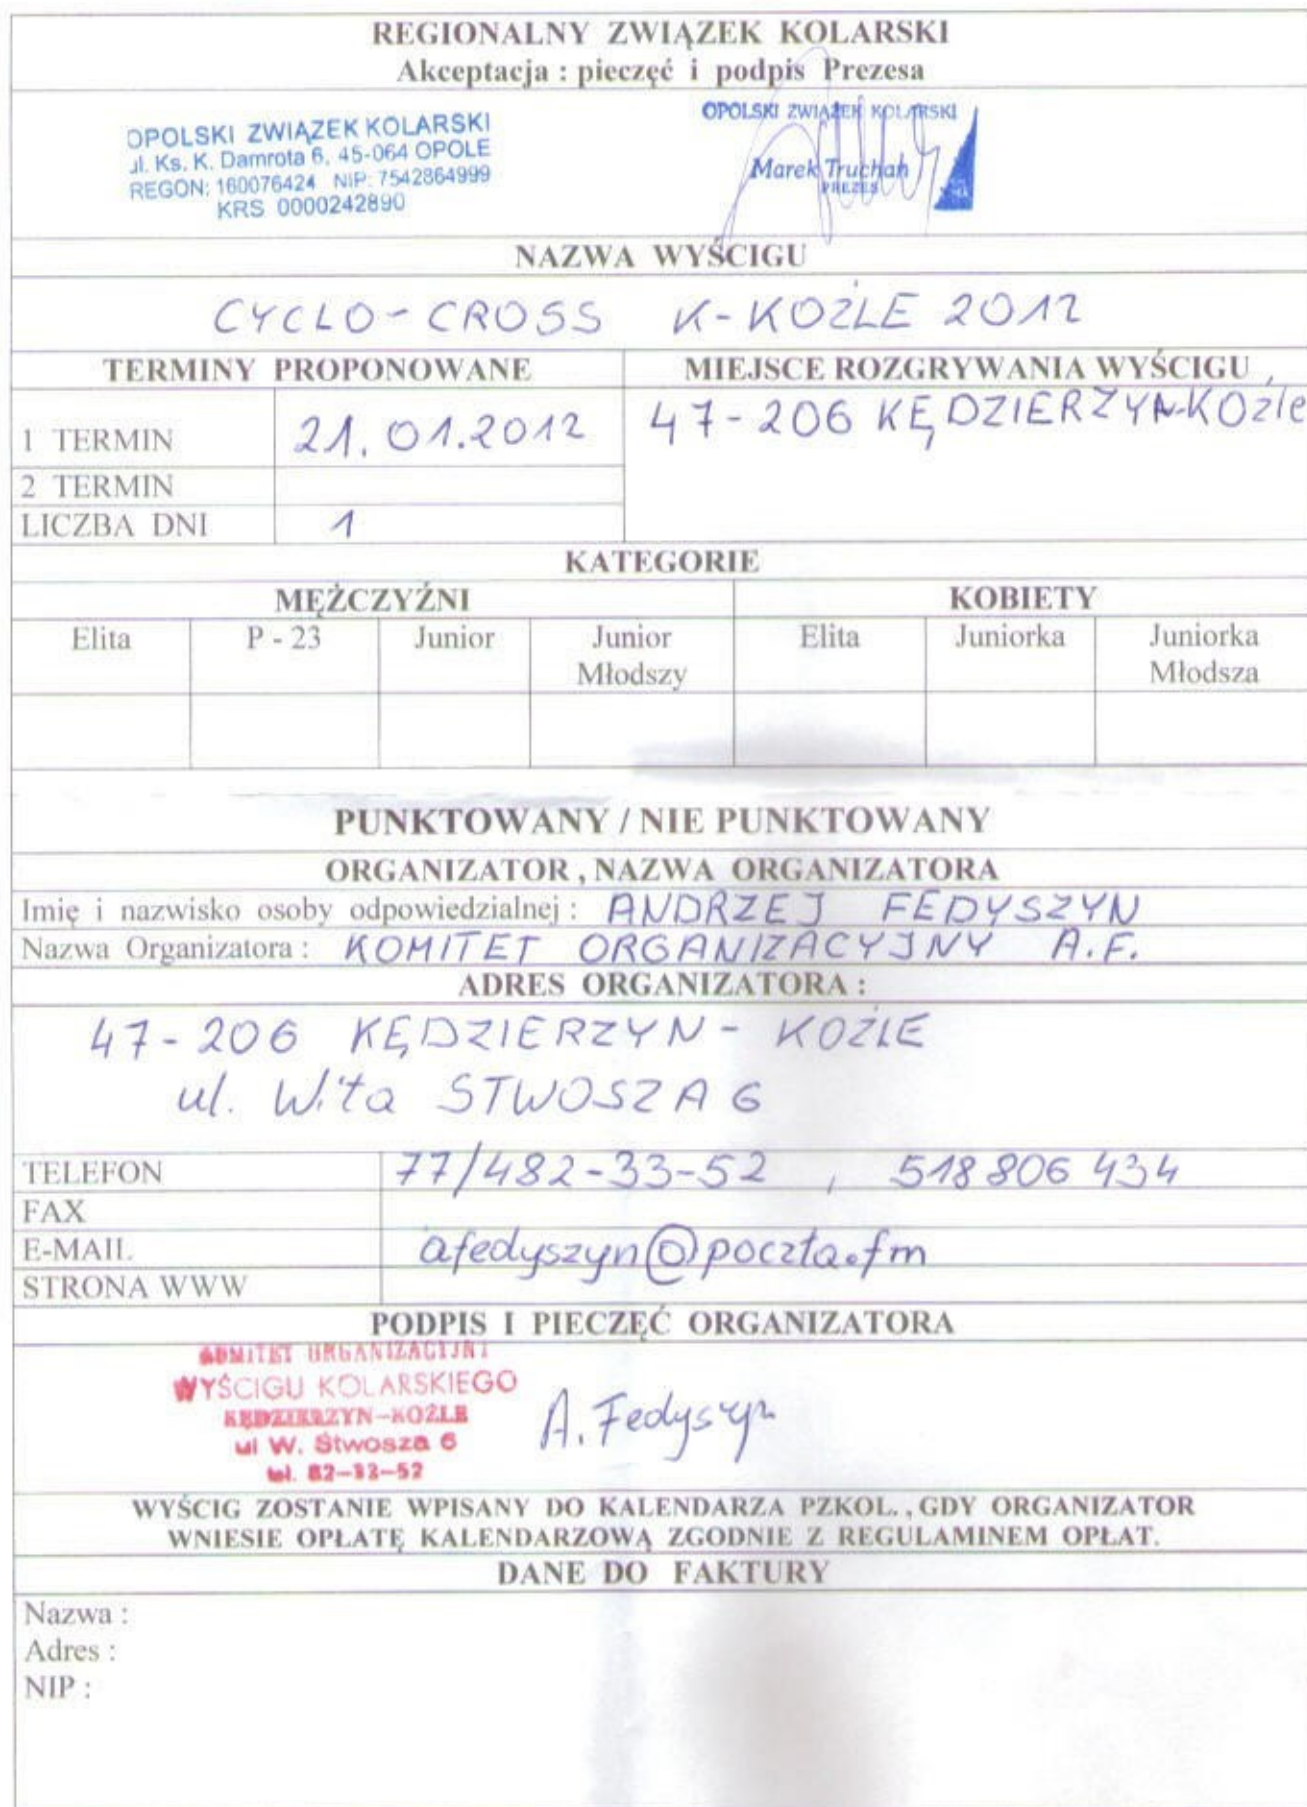 REGIONALNY ZWIĄZEK KOLARSKI
Akceptacja : pieczęć i podpis Prezesa
OPOLSKI ZWIĄZEK KOLARSKI
ul. Ks. K. Damrota 6, 45-064 OPOLE
REGON: 160076424 NIP: 7542864999
KRS 0000242890
OPOLSKI ZWIĄZEK KOLARSKI
Marek Truchan
PREZES
NAZWA WYŚCIGU
CYCLO-CROSS K-KOŹLE 2012
TERMINY PROPONOWANE MIEJSCE ROZGRYWANIA WYŚCIGU
1 TERMIN 21.01.2012 47-206 KĘDZIERZYN-KOźle
2 TERMIN
LICZBA DNI 1
KATEGORIE
MĘŻCZYŹNI KOBIETY
Elita P - 23 Junior Junior Młodszy Elita Juniorka Juniorka Młodsza
PUNKTOWANY / NIE PUNKTOWANY
ORGANIZATOR , NAZWA ORGANIZATORA
Imię i nazwisko osoby odpowiedzialnej : ANDRZEJ FEDYSZYN
Nazwa Organizatora : KOMITET ORGANIZACYJNY A.F.
ADRES ORGANIZATORA :
47-206 KĘDZIERZYN-KOŹLE
ul. Wita STWOSZA 6
TELEFON 77/482-33-52 , 518 806 434
FAX
E-MAIL afedyszyn@poczta.fm
STRONA WWW
PODPIS I PIECZĘĆ ORGANIZATORA
KOMITET ORGANIZACYJNY
WYŚCIGU KOLARSKIEGO
KĘDZIERZYN-KOŹLE
ul W. Stwosza 6
tel. 82-33-52
A. Fedyszyn
WYŚCIG ZOSTANIE WPISANY DO KALENDARZA PZKOL. , GDY ORGANIZATOR
WNIESIE OPŁATĘ KALENDARZOWĄ ZGODNIE Z REGULAMINEM OPŁAT.
DANE DO FAKTURY
Nazwa :
Adres :
NIP :